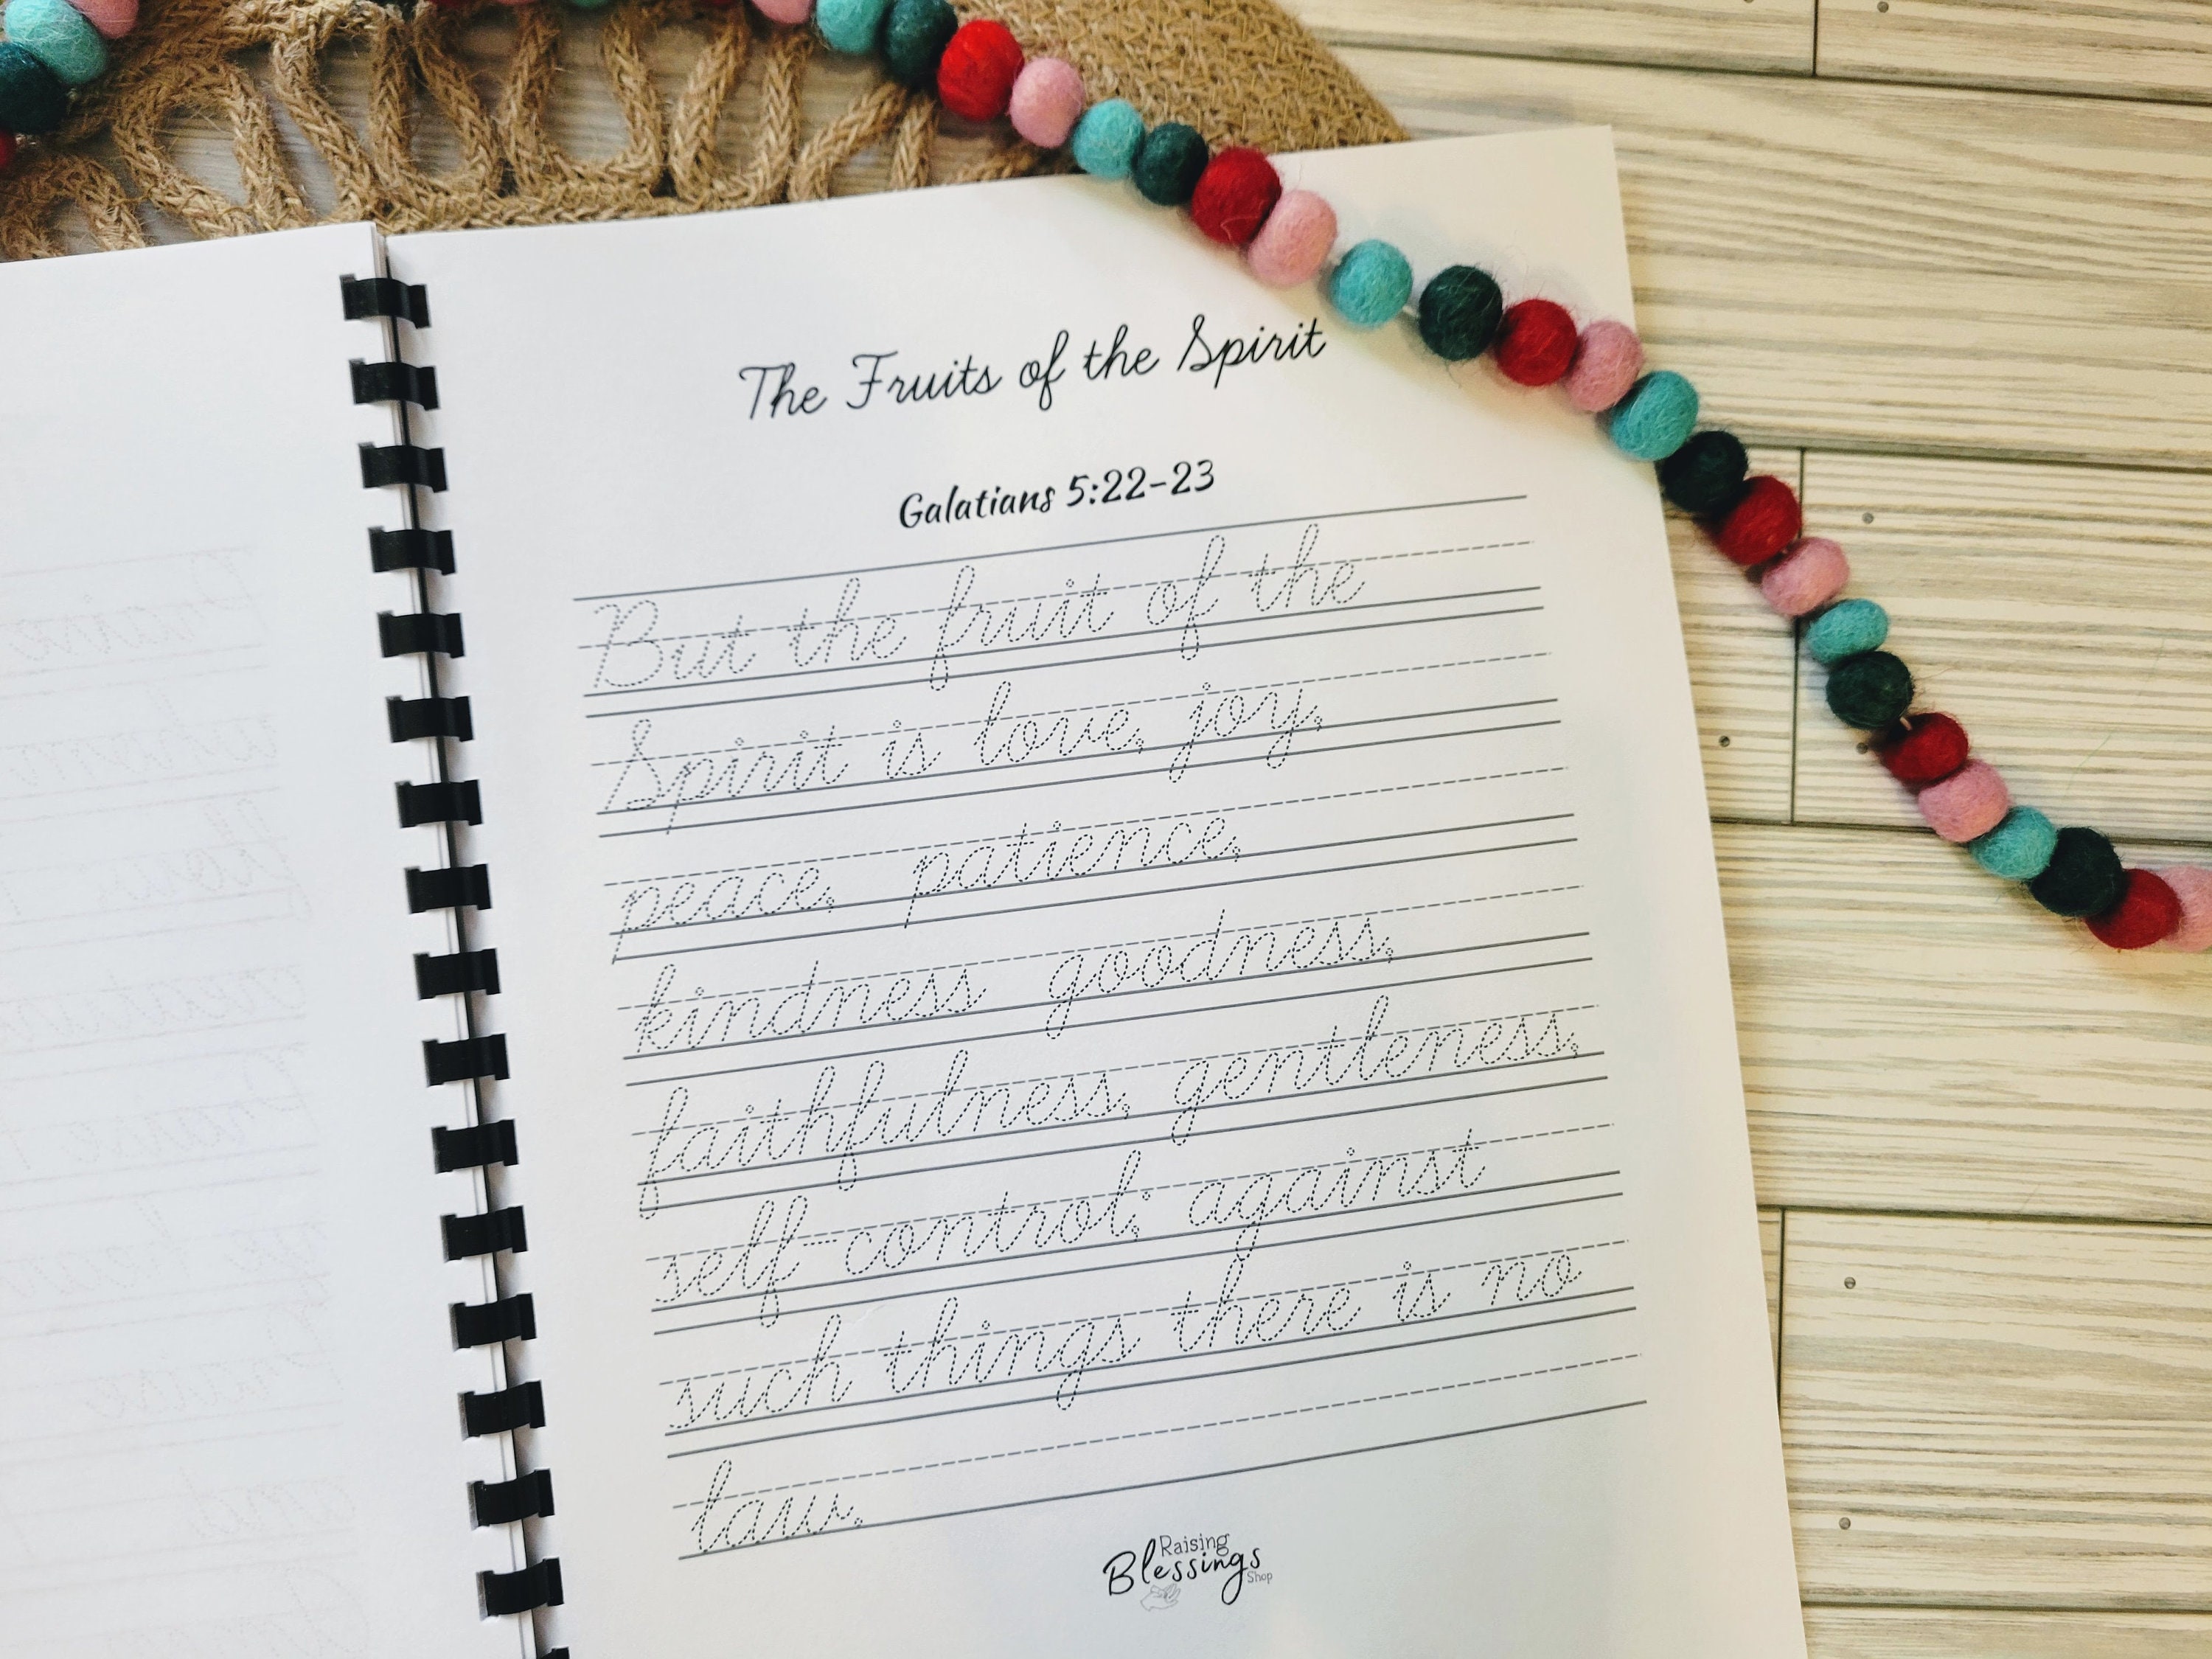 The Fruits of the Spirit
Galatians 5:22-23
But the fruit of the
Spirit is love, joy,
peace, patience,
kindness goodness,
faithfulness, gentleness,
self-control; against
such things there is no
law.
Raising
Blessings
Shop